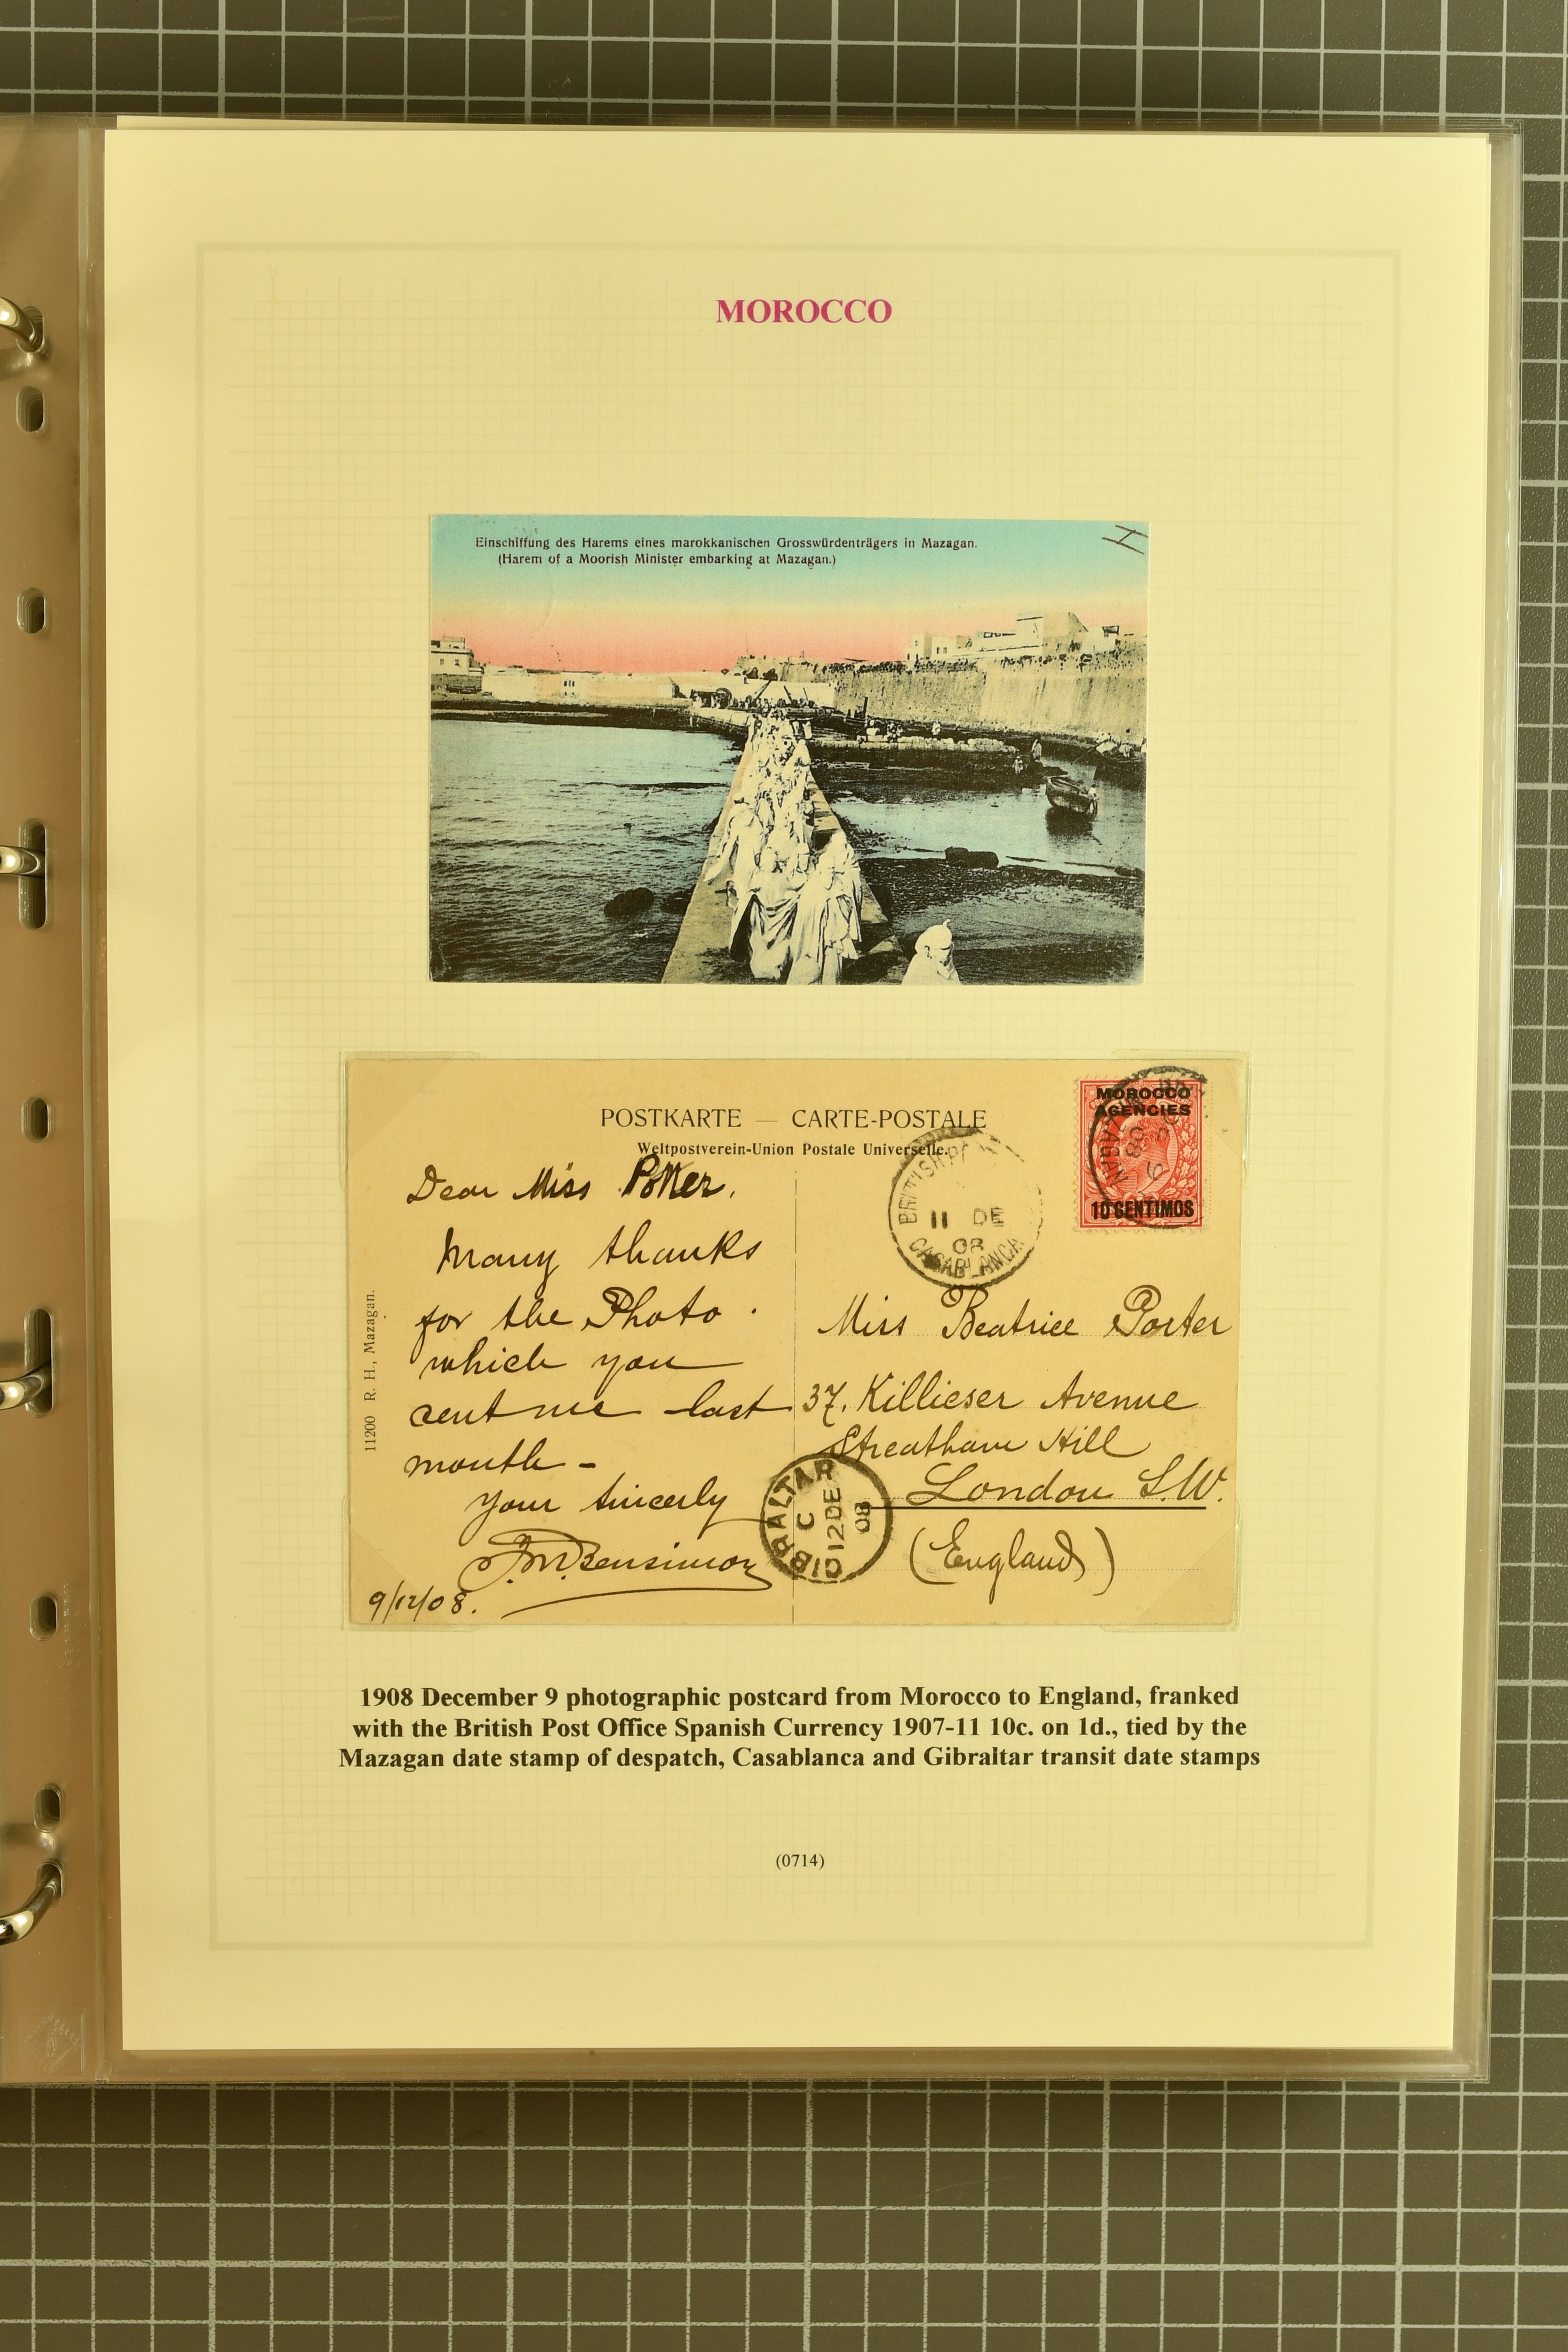 MOROCCO
Einschiffung des Harems eines marokkanischen Grosswürdenträgers in Mazagan.
(Harem of a Moorish Minister embarking at Mazagan.)
H
POSTKARTE — CARTE-POSTALE
Weltpostverein-Union Postale Universelle.
MOROCCO
AGENCIES
10 CENTIMOS
MAZAGAN
BRITISH
11 DE
08
CASABLANCA
Dear Miss Porter,
Many thanks
for the Photo
which you
sent me last
month -
Your sincerly
J.M.Bensimon
9/12/08.
11200 R. H., Mazagan.
Miss Beatrice Porter
37. Killieser Avenue
Streatham Hill
London S.W.
(England)
GIBRALTAR
C
12 DE
08
1908 December 9 photographic postcard from Morocco to England, franked
with the British Post Office Spanish Currency 1907-11 10c. on 1d., tied by the
Mazagan date stamp of despatch, Casablanca and Gibraltar transit date stamps
(0714)